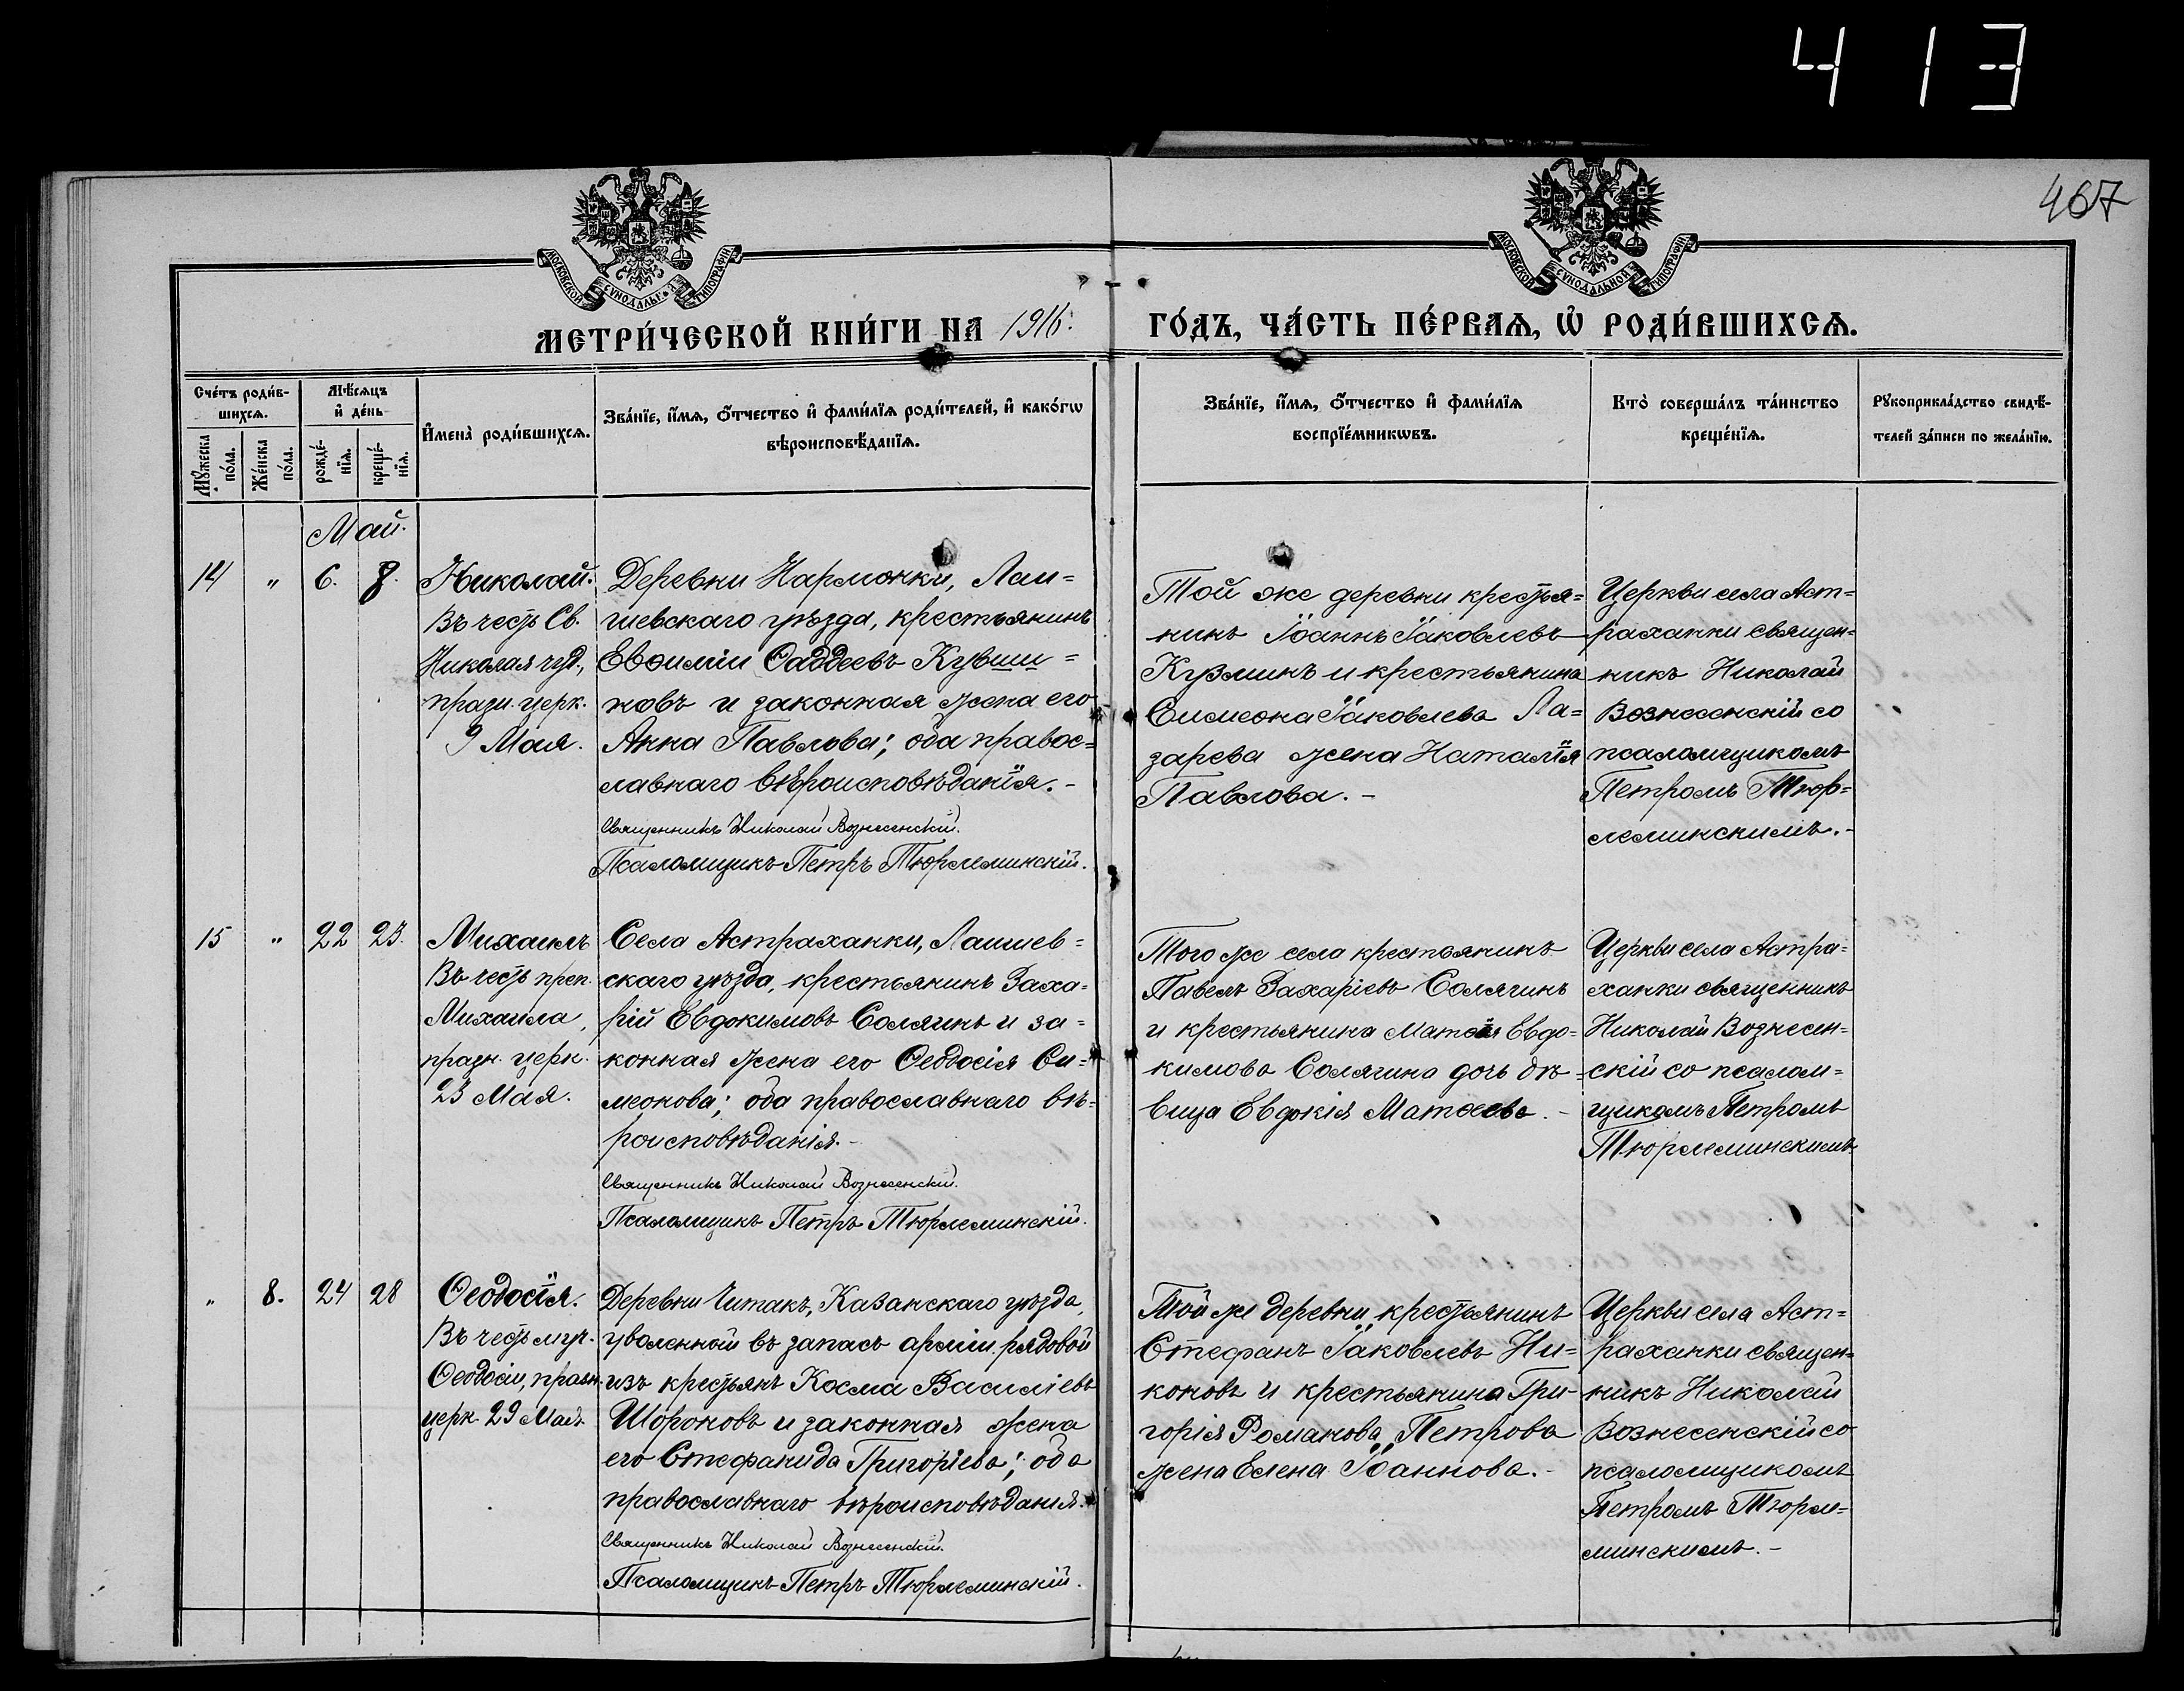 4 1 3
467
МОСКОВСКОЙ СѴНОДАЛЬНОЙ ТИПОГРАФІИ
МОСКОВСКОЙ СѴНОДАЛЬНОЙ ТИПОГРАФІИ
МЕТРИ́ЧЕСКОЙ КНИ́ГИ НА 1916.
ГО́ДЪ, ЧА́СТЬ ПЕ́РВАѦ, Ѡ҆ РОДИ́ВШИХСѦ.
Сче́тъ роди́в-
шихсѧ.
Мѣ́сѧцъ
и҆ де́нь
Мꙋ́жеска
по́ла.
Же́нска
по́ла.
рожде́-
нїѧ.
креще́-
нїѧ.
И҆мена̀ роди́вшихсѧ.
Зва́нїе, и҆́мѧ, ѻ҆́тчество и҆ фами́лїѧ роди́телей, и҆ како́гѡ
вѣроисповѣ́данїѧ.
Зва́нїе, и҆́мѧ, ѻ҆́тчество и҆ фами́лїѧ
воспрїе́мникѡвъ.
Кто̀ соверша́лъ та́инство
креще́нїѧ.
Рꙋкоприкла́дство свидѣ́-
телей за́писи по жела́нїю.
Май.
14 " 6. 8.
Николай.
Въ честь Св.
Николая чуд.,
празн. церк.
9 Мая.
Деревни Нармонки, Лаи-
шевскаго уѣзда, крестьянинъ
Евѳимій Ѳаддеевъ Кувши-
новъ и законная жена его
Анна Павлова; оба правос-
лавнаго вѣроисповѣданія. -
Священникъ Николай Вознесенскій.
Псаломщикъ Петръ Тюрлеминскій.
Той же деревни крестья-
нинъ Іоаннъ Іаковлевъ
Кузминъ и крестьянина
Симеона Іаковлева Ла-
зарева жена Наталія
Павлова. -
Церкви села Аст-
раханки священ-
никъ Николай
Вознесенскій со
псаломщикомъ
Петромъ Тюр-
леминскимъ. -
15 " 22 23.
Михаилъ
Въ честь преп.
Михаила,
празн. церк.
23 Мая.
Села Астраханки, Лаишев-
скаго уѣзда, крестьянинъ Заха-
рій Евдокимовъ Солягинъ и за-
конная жена его Ѳеодосія Си-
меонова; оба православнаго вѣ-
роисповѣданія. -
Священникъ Николай Вознесенскій.
Псаломщикъ Петръ Тюрлеминскій.
Того же села крестьянинъ
Павелъ Захаріевъ Солягинъ
и крестьянина Матѳія Евдо-
кимова Солягина дочь дѣ-
вица Евдокія Матѳеева. -
Церкви села Астра-
ханки священникъ
Николай Вознесен-
скій со псалом-
щикомъ Петромъ
Тюрлеминскимъ
" 8. 24 28
Ѳеодосія.
Въ честь муч.
Ѳеодосіи, празн.
церк. 29 Мая.
Деревни Читакъ, Казанскаго уѣзда,
уволенный въ запасъ арміи рядовой
изъ крестьянъ Косма Василіевъ
Шороновъ и законная жена
его Стефанида Григоріева; оба
православнаго вѣроисповѣданія.
Священникъ Николай Вознесенскій.
Псаломщикъ Петръ Тюрлеминскій.
Той же деревни, крестьянинъ
Стефанъ Іаковлевъ Ни-
коновъ и крестьянина Гри-
горія Романова, Петрова
жена Елена Іоаннова. -
Церкви села Аст-
раханки священ-
никъ Николай
Вознесенскій со
псаломщикомъ
Петромъ Тюрле-
минскимъ. -